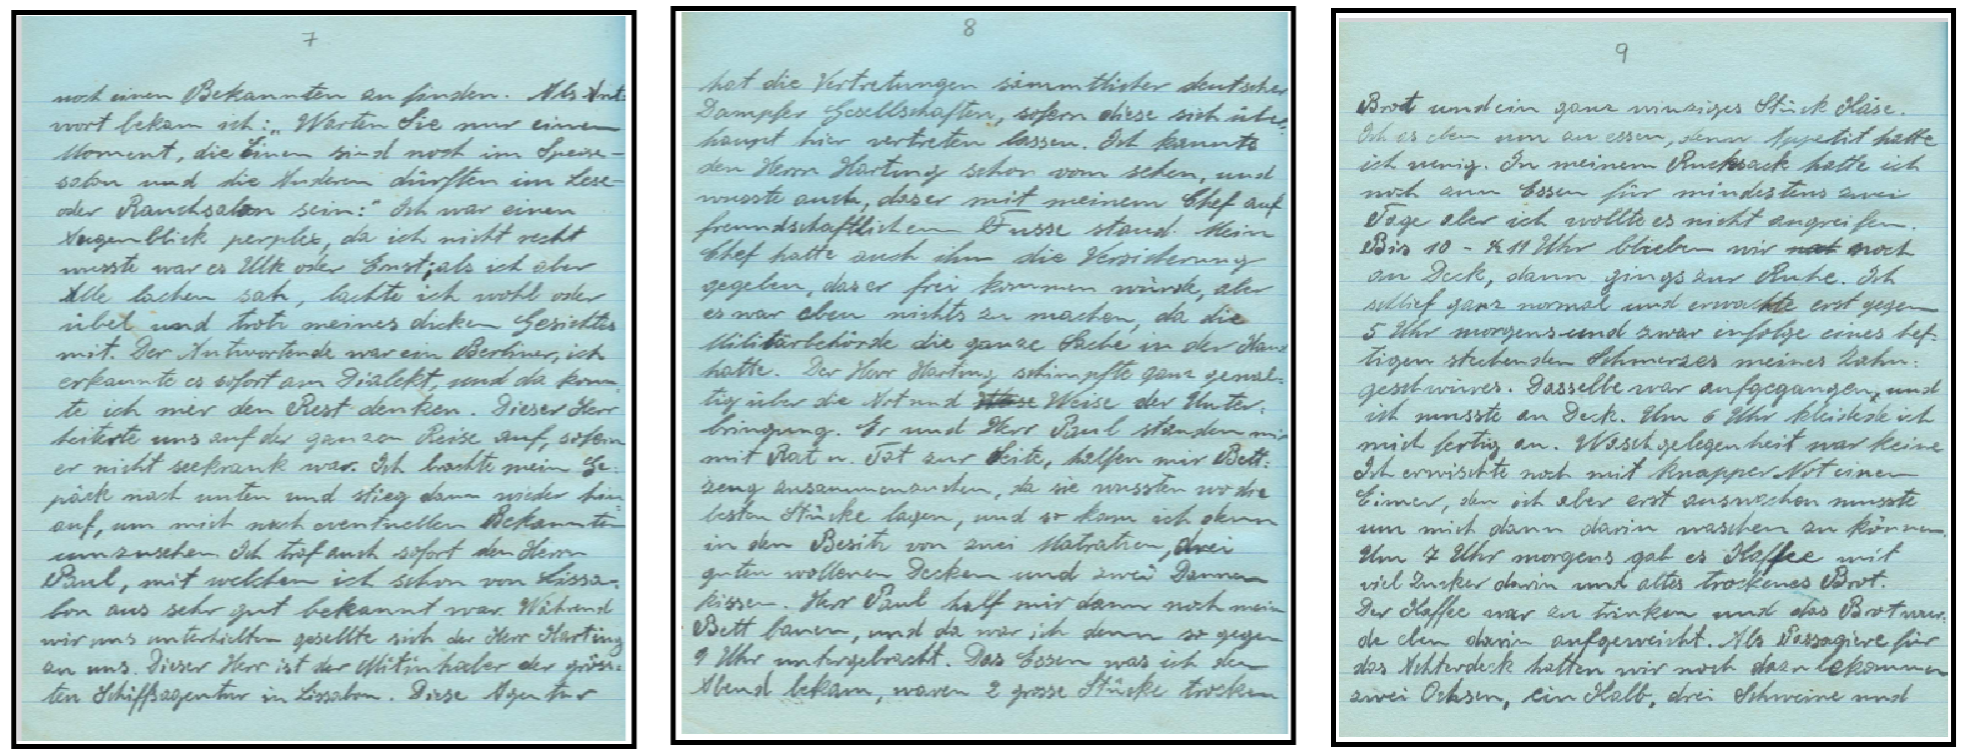 7
noch einen Bekannten zu finden. Als Ant-
wort bekam ich: „Warten Sie nur einen
Moment, die Einen sind noch im Speise-
salon und die Anderen dürften im Lese-
oder Rauchsalon sein:" Ich war einen
Augenblick perplex, da ich nicht recht
wusste war es Ulk oder Ernst, als ich aber
Alle lachen sah, lachte ich wohl oder
übel und trotz meines dicken Gesichtes
mit. Der Antwortende war ein Berliner, ich
erkannte es sofort am Dialekt, und da konn-
te ich mir den Rest denken. Dieser Herr
heiterte uns auf der ganzen Reise auf, sofern
er nicht seekrank war. Ich brachte mein Ge-
päck nach unten und stieg dann wieder hin-
auf, um mich nach eventuellen Bekannten
umzusehen. Ich traf auch sofort den Herrn
Paul, mit welchem ich schon von Lissa-
bon aus sehr gut bekannt war. Während
wir uns unterhielten gesellte sich der Herr Harting
an uns. Dieser Herr ist der Mitinhaber der gröss-
ten Schiffsagentur in Lissabon. Diese Agentur
8
hat die Vertretungen sämmtlicher deutscher
Dampfer Gesellschaften, sofern diese sich über-
haupt hier vertreten lassen. Ich kannte
den Herrn Harting schon vom sehen, und
wusste auch, dass er mit meinem Chef auf
freundschaftlichem Fusse stand. Mein
Chef hatte auch ihm die Versicherung
gegeben, dass er frei kommen würde, aber
es war eben nichts zu machen, da die
Militärbehörde die ganze Sache in der Hand
hatte. Der Herr Harting schimpfte ganz gewal-
tig über die Art und Weise der Unter-
bringung. Er und Herr Paul standen mir
mit Rat u. Tat zur Seite, halfen mir Bett-
zeug zusammensuchen, da sie wussten wo die
besten Stücke lagen, und so kam ich denn
in den Besitz von zwei Matratzen, drei
guten wollenen Decken und zwei Daunen
kissen. Herr Paul half mir dann noch mein
Bett bauen, und da war ich denn so gegen
9 Uhr untergebracht. Das Essen was ich den
Abend bekam, waren 2 grosse Stücke trocken
9
Brot und ein ganz winziges Stück Käse.
Ich es eben um zu essen, denn Appetit hatte
ich wenig. In meinem Rucksack hatte ich
noch zum Essen für mindestens zwei
Tage aber ich wollte es nicht angreifen.
Bis 10 - ½ 11 Uhr blieben wir noch
an Deck, dann gings zur Ruhe. Ich
schlief ganz normal und erwachte erst gegen
5 Uhr morgens und zwar infolge eines hef-
tigen stechenden Schmerzes meines Zahn-
geschwüres. Dasselbe war aufgegangen, und
ich musste an Deck. Um 6 Uhr kleidete ich
mich fertig an. Waschgelegenheit war keine
Ich erwischte noch mit knapper Not einen
Eimer, den ich aber erst auswaschen musste
um mich dann darin waschen zu können.
Um 7 Uhr morgens gab es Kaffee mit
viel Zucker darin und altes trockenes Brot.
Der Kaffee war zu trinken und das Brot wur-
de eben darin aufgeweicht. Als Passagiere für
das Achterdeck hatten wir noch dazu bekommen
zwei Ochsen, ein Kalb, drei Schweine und